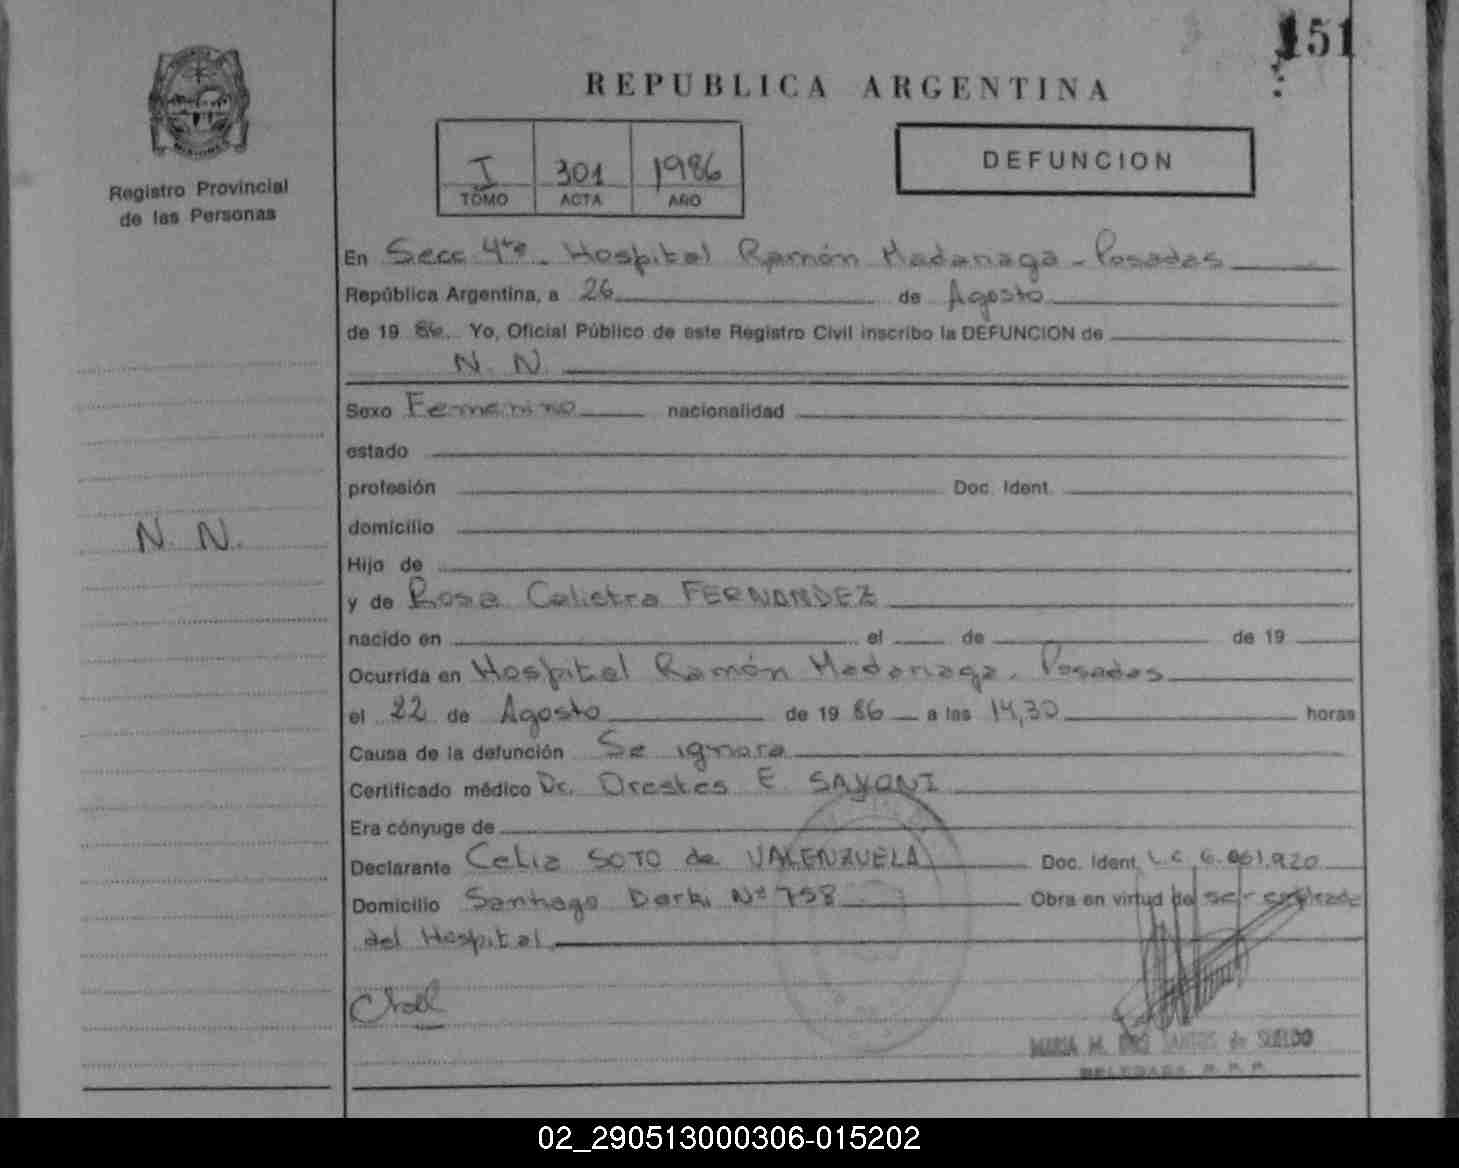 151
REPUBLICA ARGENTINA
Registro Provincial
de las Personas
I 301 1986
TOMO ACTA AÑO
DEFUNCION
En Secc 4ta. Hospital Ramón Madariaga - Posadas
República Argentina, a 26 de Agosto
de 19 86. Yo, Oficial Público de este Registro Civil inscribo la DEFUNCION de
N. N.
Sexo Femenino nacionalidad
estado
profesión Doc. Ident.
N. N.
domicilio
Hijo de
y de Rosa Calistra FERNANDEZ
nacido en el de de 19
Ocurrida en Hospital Ramón Madariaga. Posadas
el 22 de Agosto de 19 86 a las 14,30 horas
Causa de la defunción Se ignora
Certificado médico Dr. Orestes E. SAYONI
Era cónyuge de
Declarante Celia SOTO de VALENZUELA Doc. Ident. L.C 6.061.920
Domicilio Santiago Nº 758 Obra en virtud de ser empleada
del Hospital
MARIA M. DOS SANTOS de SUELDO
DELEGADA R.P.P.
02_290513000306-015202